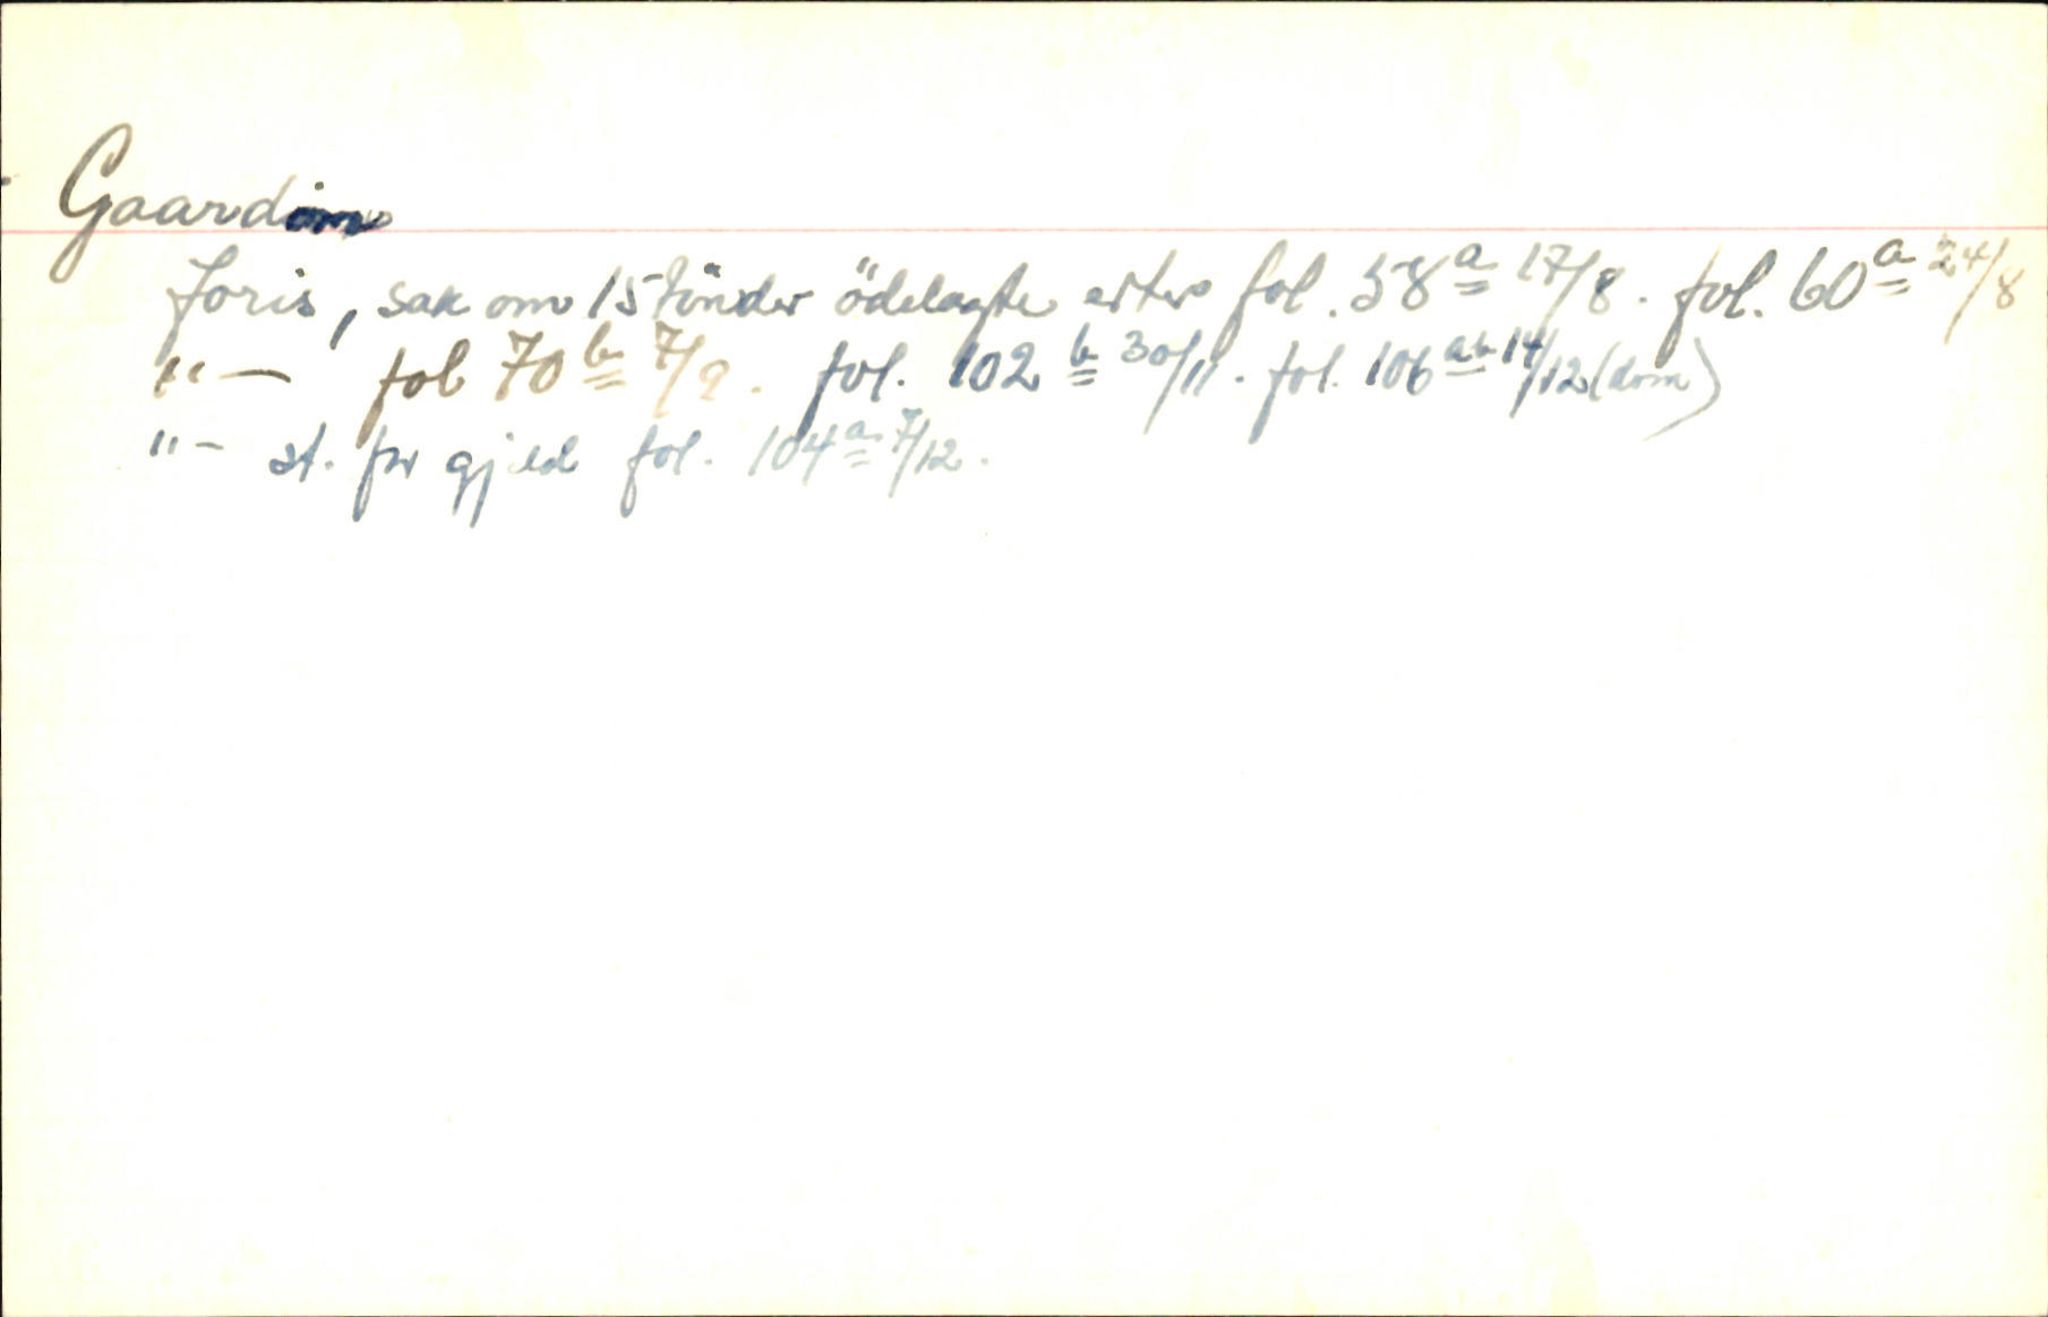 Gaardin
Joris, sak om 15 tönder ödelagte erter fol. 58a 17/8. fol. 60a 24/8
"— fol 70b 7/9. fol. 102b 30/11. fol. 106ab 14/12 (dom)
"— st. for gjeld fol. 104a 7/12.